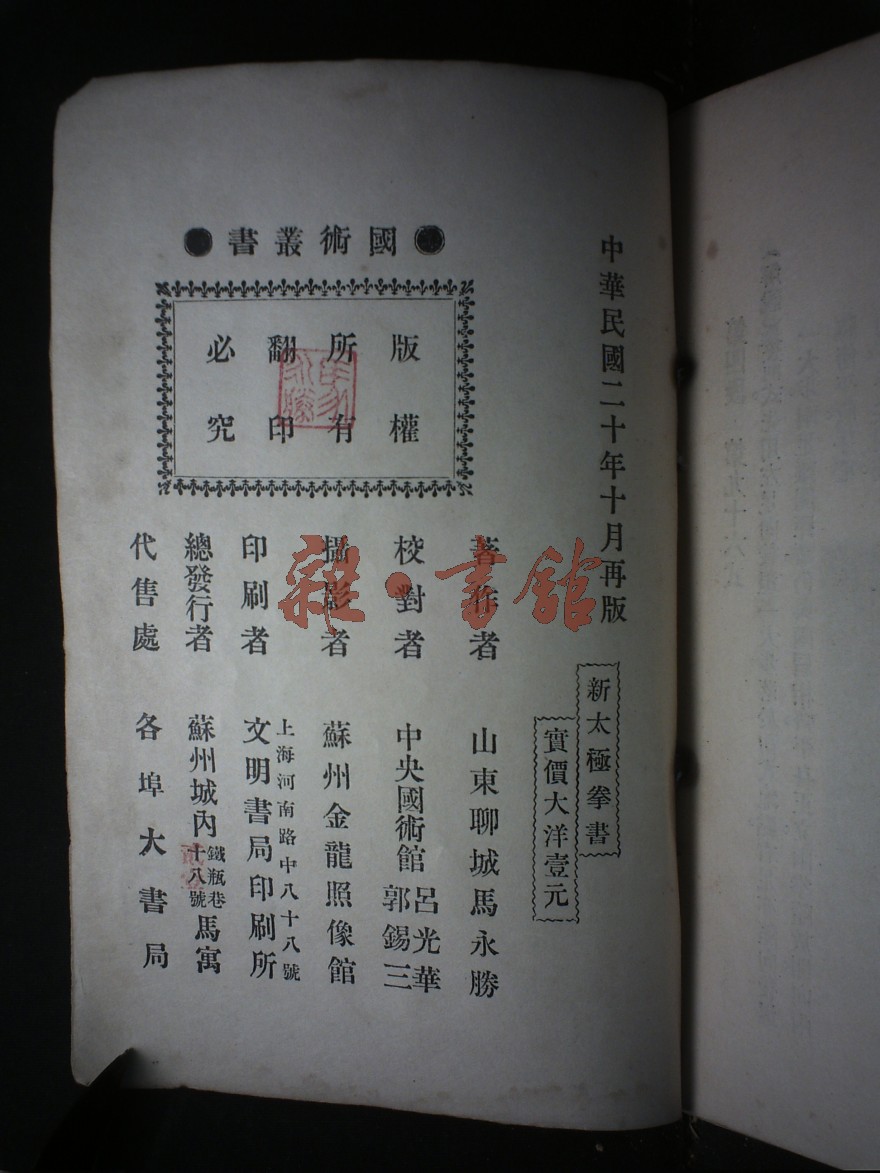 中華民國二十年十月再版
新太極拳書
實價大洋壹元
●國術叢書●
版權
所有
翻印
必究
著作者 山東聊城馬永勝
校對者 中央國術館 呂光華 郭錫三
攝影者 蘇州金龍照像館
印刷者 上海河南路中八十八號 文明書局印刷所
總發行者 蘇州城內鐵瓶巷十八號馬寓
代售處 各埠大書局
雜·書館